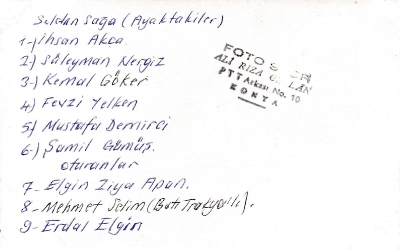 Soldan Sağa (Ayaktakiler)
1-) İhsan Akca
2-) Süleyman Nergiz
3-) Kemal Göker
4) Fevzi Yelken
5) Mustafa Demirci
6-) Şamil Gümüş.
oturanlar
7- Elgin Ziya Apan.
8- Mehmet Selim (Batı Trakyalı).
9- Erdal Elgin
FOTO
ALİ RIZA
PTT Arkası No. 10
KONYA